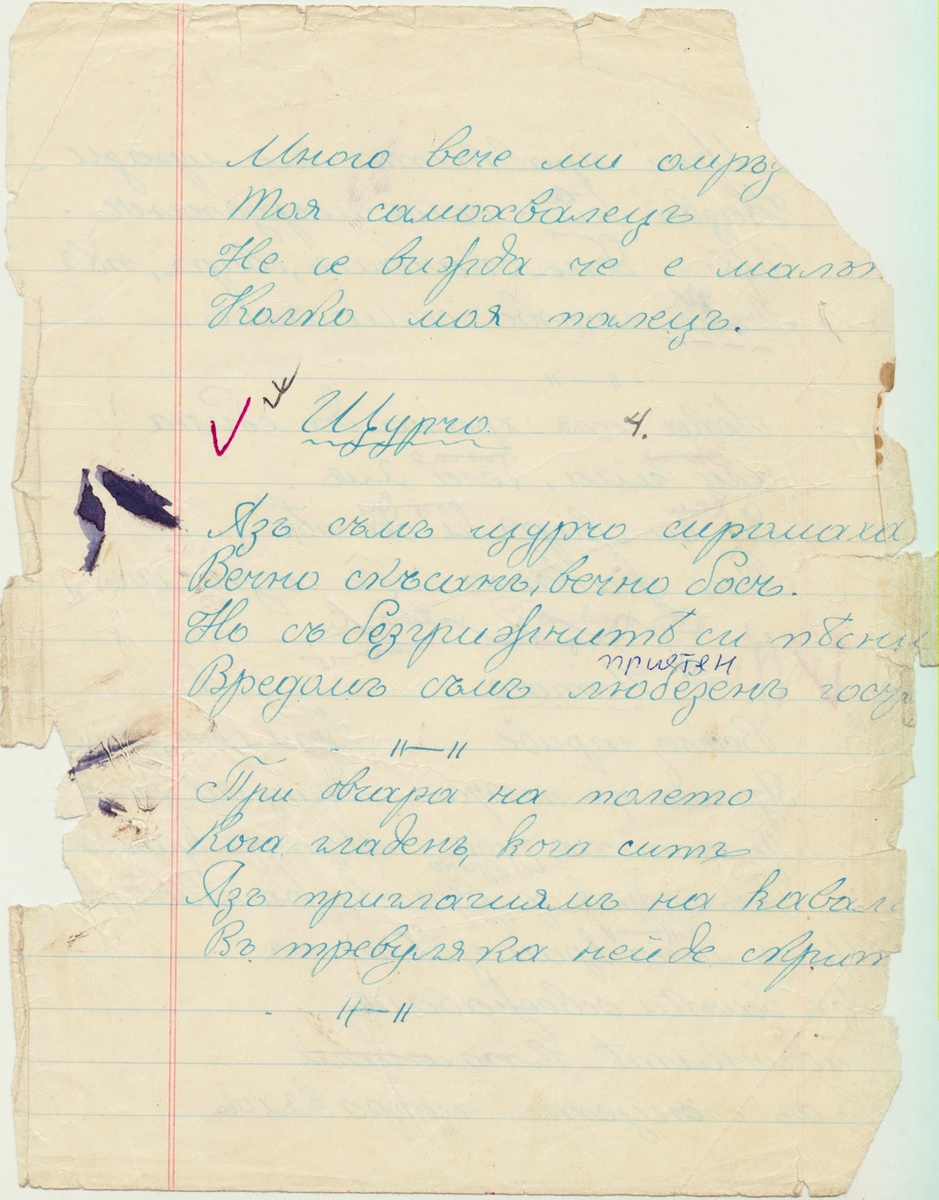 Много вече ми омръз
Тоя самохвалецъ
Не се вижда че е малък
Колко моя палецъ.
Щурчо. 4.
Азъ съмъ щурчо сиромаха
Вечно скъсанъ, вечно босъ.
Но съ безгрижнитѣ си пѣсни
приятен
Вредомъ съмъ любезенъ гост
При овчара на полето
Кога гладенъ, кога ситъ
Азъ приглашямъ на кавала
Въ тревуляка нейде скрит